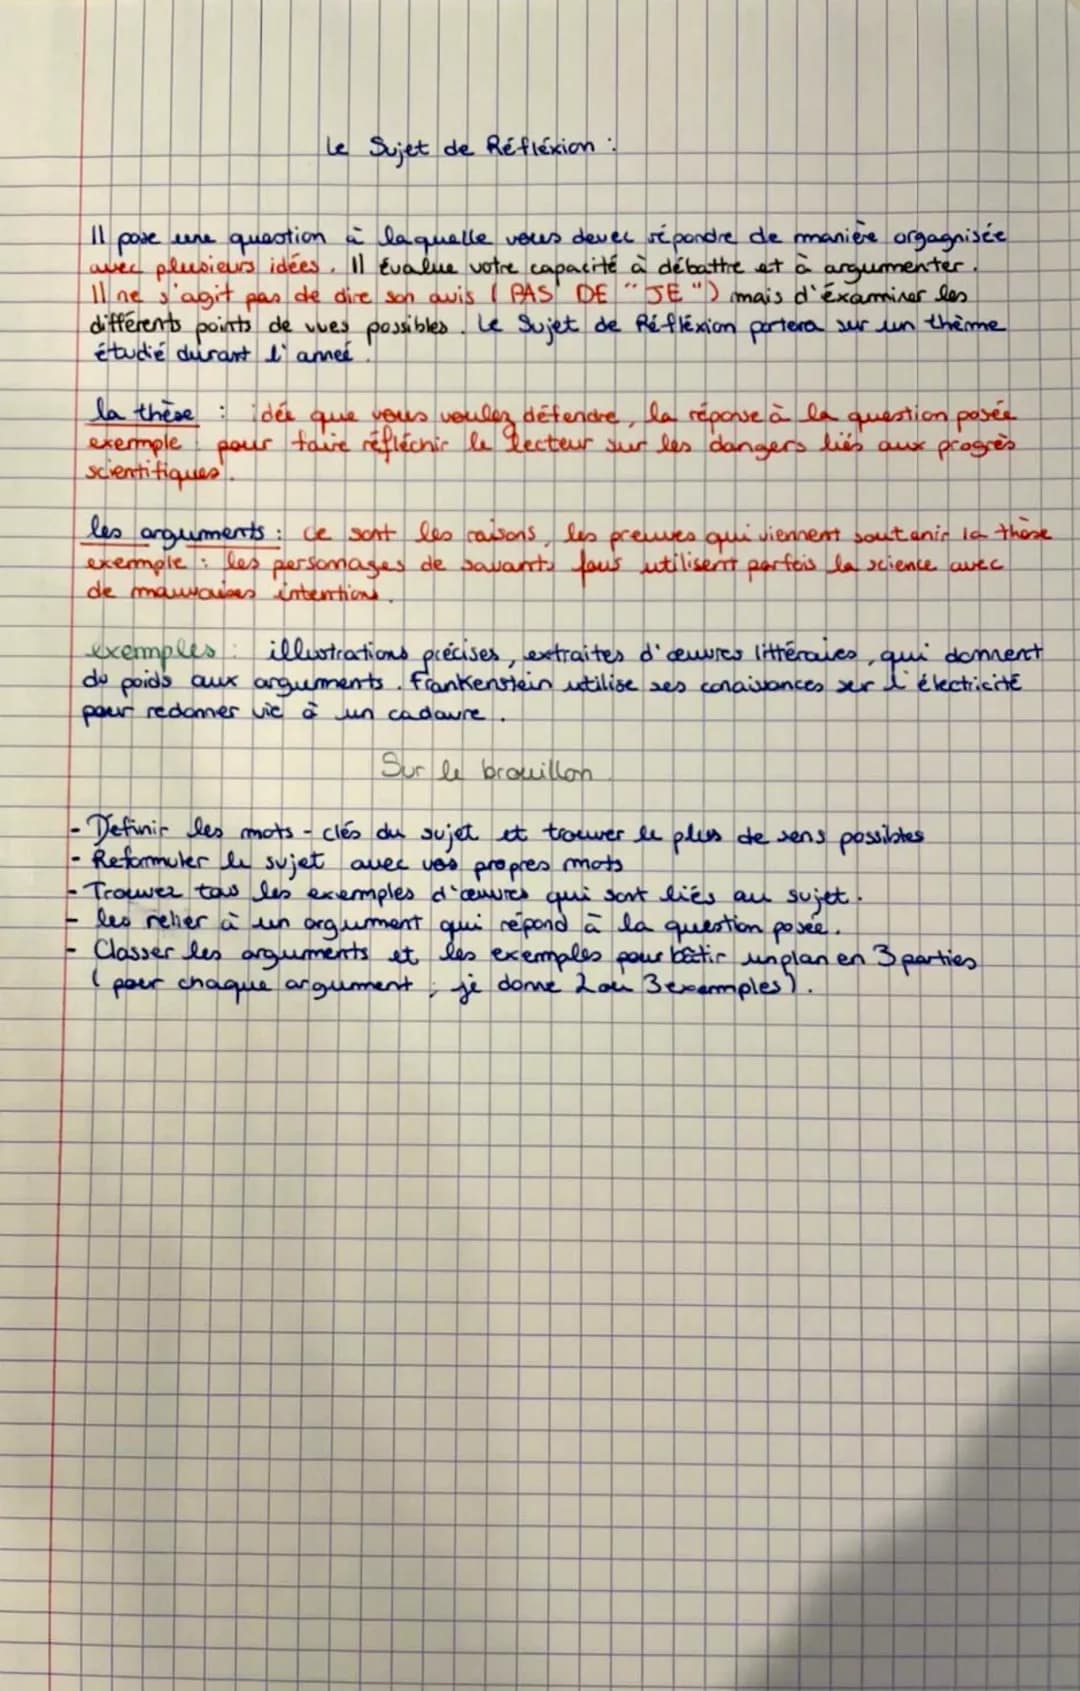 Le Sujet de Réfléxion :
Il pose une question à laquelle vous devez répondre de manière orgagnisée
avec plusieurs idées. Il évalue votre capacité à débattre et à argumenter.
Il ne s'agit pas de dire son avis ( PAS DE "JE") mais d'éxaminer les
différents points de vues possibles. Le Sujet de Réfléxion portera sur un thème
étudié durant l'anneé.
la thèse : idée que vous voulez défendre, la réponse à la question posée
exemple : pour faire réfléchir le lecteur sur les dangers liés aux progrès
scientifiques.
les arguments : Ce sont les raisons, les preuves qui viennent soutenir la thèse
exemple : les personnages de savants fous utilisent parfois la science avec
de mauvaises intentions.
exemples : illustrations précises, extraites d'œuvres littéraires, qui donnent
du poids aux arguments. Frankenstein utilise ses conaissances sur l'électricité
pour redonner vie à un cadavre.
Sur le brouillon
- Définir les mots-clés du sujet et trouver le plus de sens possibles
- Reformuler le sujet avec vos propres mots
- Trouvez tous les exemples d'œuvres qui sont liés au sujet.
- les relier à un argument qui répond à la question posée.
- Classer les arguments et les exemples pour bâtir un plan en 3 parties
( pour chaque argument ; je donne 2 ou 3 exemples).